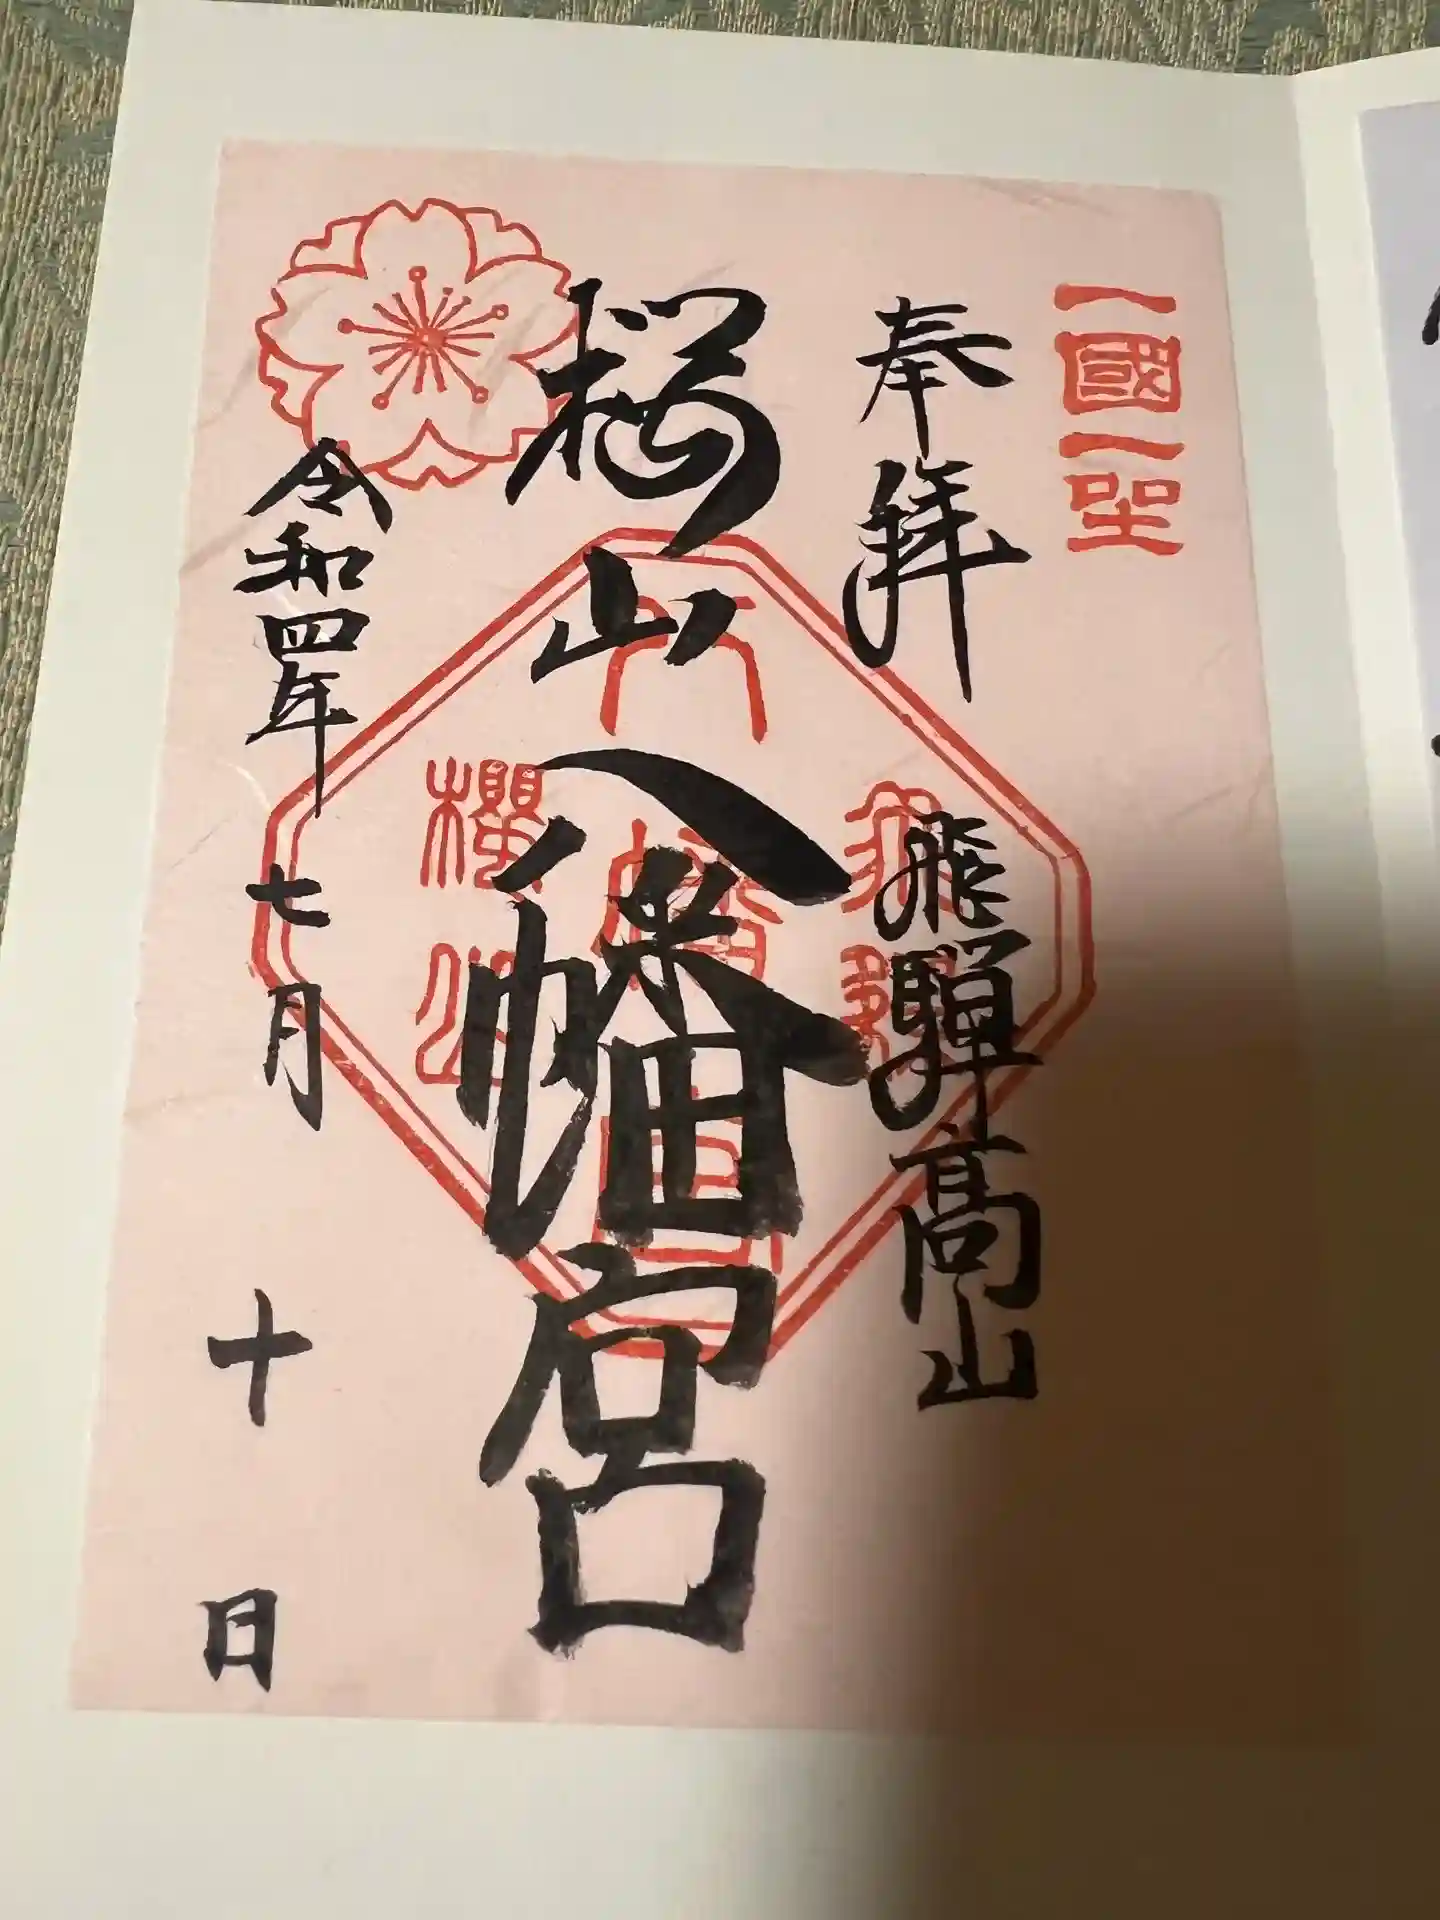 一國一社
奉拝
飛騨高山
桜山八幡宮
飛騨
八幡宮
櫻山
令和四年
七月
十日